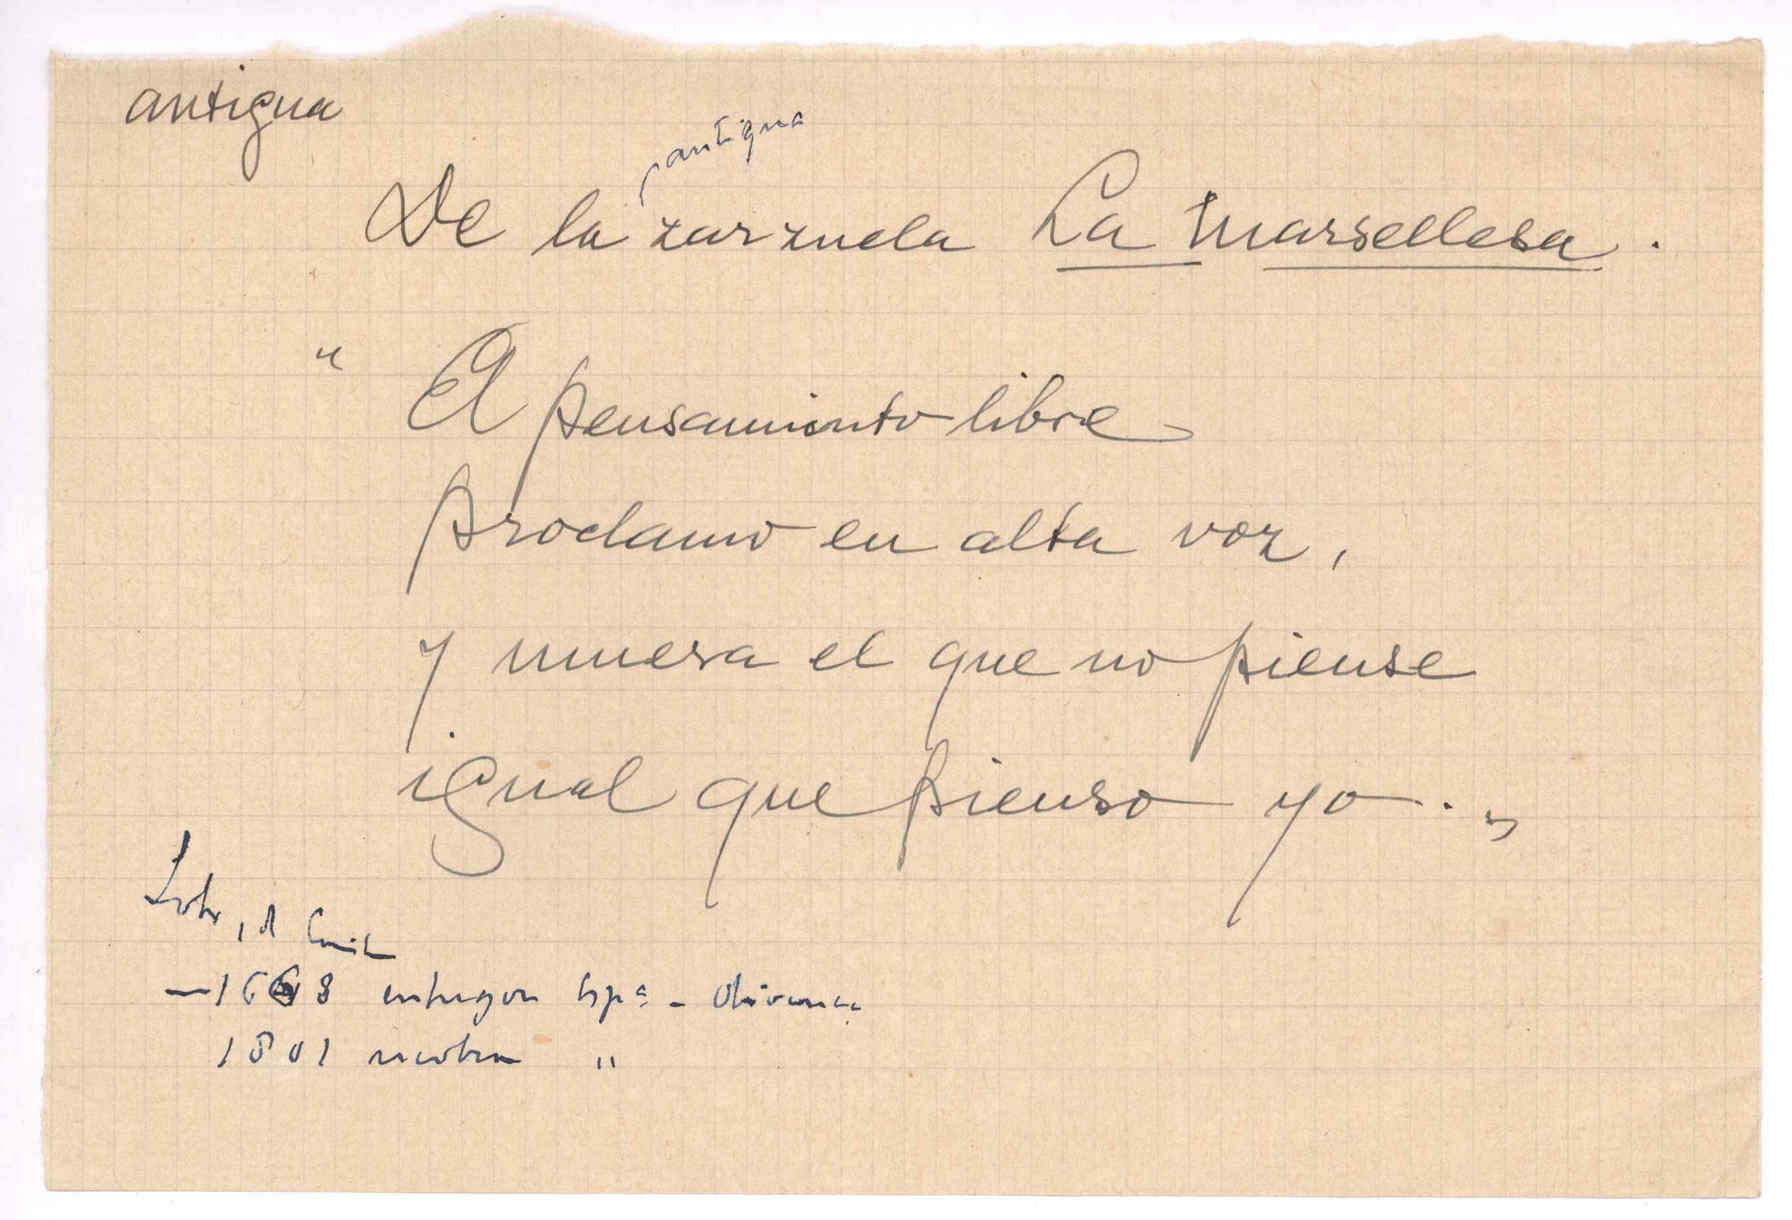 antigua
antigua
De la zarzuela La Marsellesa.
" El pensamiento libre
proclamo en alta voz,
y muera el que no piense
igual que pienso yo. "
— 1668 entregon Espª - Olivenza
1801 recobra "